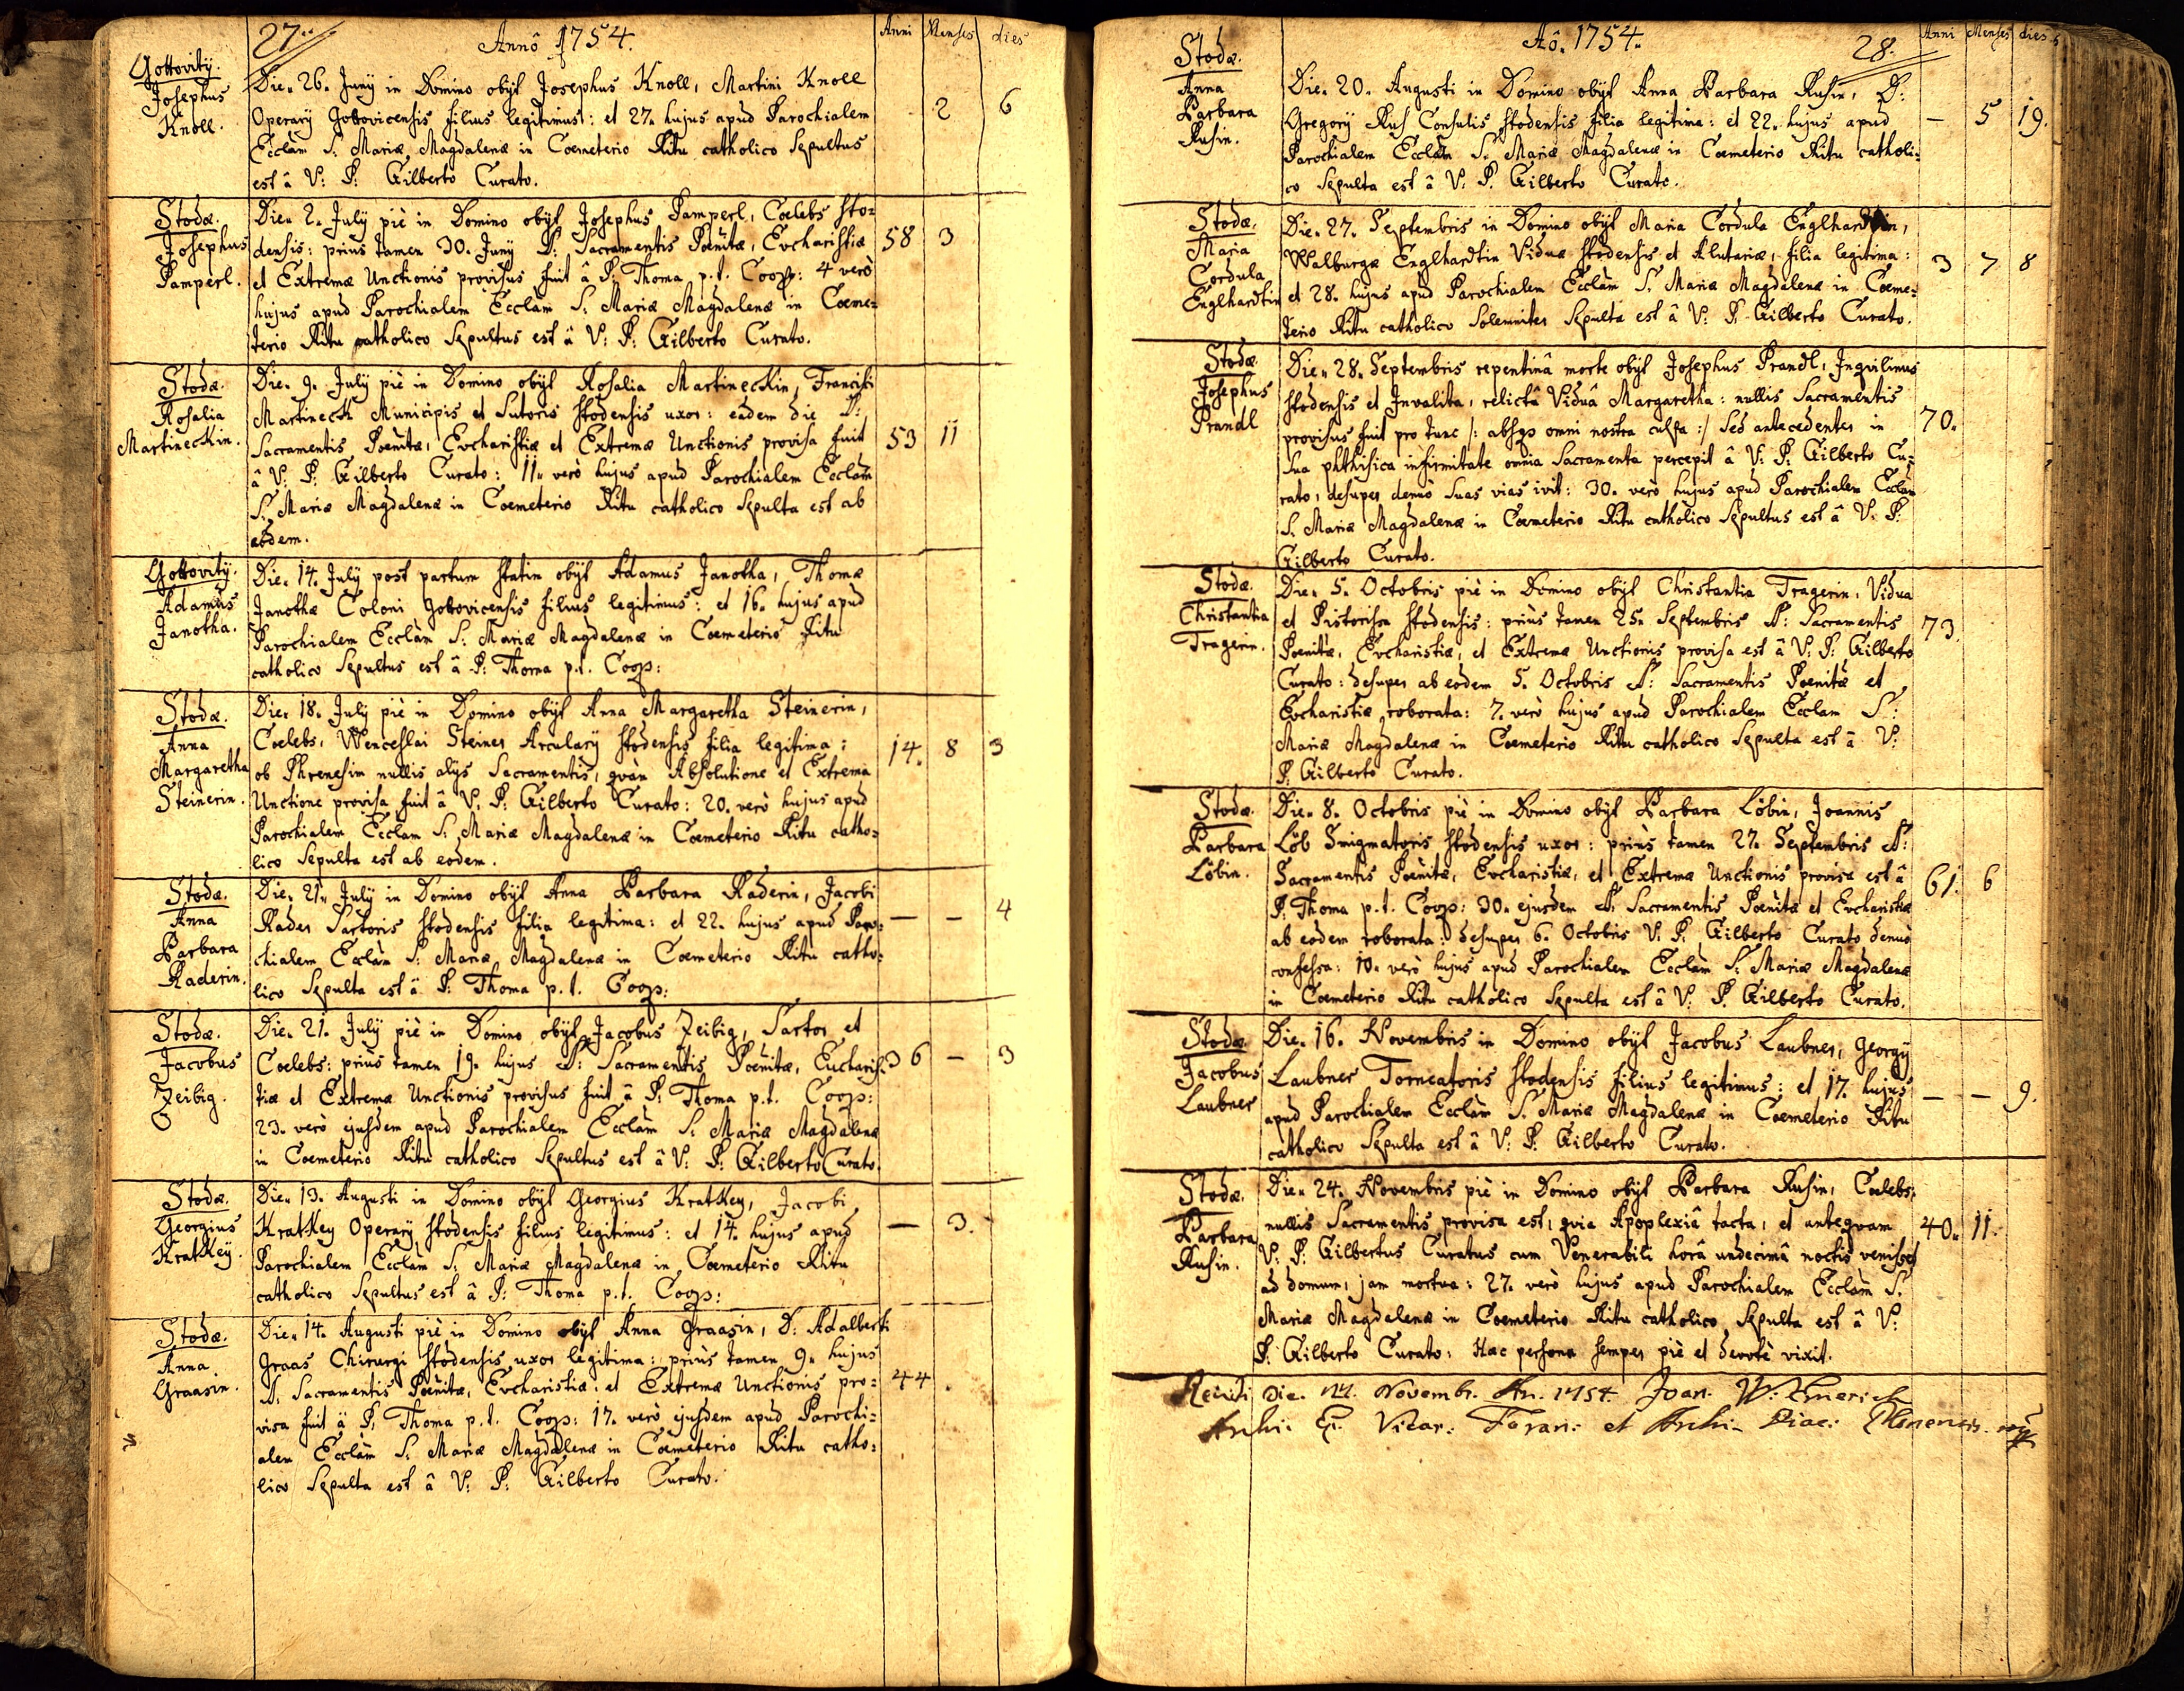 27.
Annô 1754.
Anni Menses dies
Gottovitÿ.
Josephus
Knoll.
Die. 26. Junÿ in Domino obÿt Josephus Knoll, Martini Knoll
Operarÿ Gottovicensis filius legitimus: et 27. hujus apud Parochialem
Ecclam S. Mariæ Magdalenæ in Coemeterio Ritu catholico Sepultus
est â V: P: Gilberto Curato.
2 6
Stodæ.
Josephus
Pamperl.
Die. 2. Julÿ piè in Domino obÿt Josephus Pamperl, Coelebs Sto=
densis: prius tamen 30. Junÿ S: Sacramentis Poenitæ, Evcharistiæ
et Extremæ Unctionis provisus fuit â P. Thoma p.t. Coop: 4 verò
hujus apud Parochialem Ecclam S. Mariæ Magdalenæ in Coeme=
terio Ritu catholico Sepultus est â V: P: Gilberto Curato.
58 3
Stodæ.
Rosalia
Martineckin.
Die. 9. Julÿ piè in Domino obÿt Rosalia Martineckin, Francisci
Martineck Municipis et Sutoris Stodensis uxor: eadem die S:
Sacramentis Poenitæ, Evcharistiæ et Extremæ Unctionis provisa fuit
â V: P: Gilberto Curato: 11. verò hujus apud Parochialem Ecclam
S. Mariæ Magdalenæ in Coemeterio Ritu catholico Sepulta est ab
eodem.
53 11
Gottovitÿ.
Adamus
Janotha.
Die. 14. Julÿ post partum statim obÿt Adamus Janotha, Thomæ
Janothæ Coloni Gottovicensis filius legitimus: et 16. hujus apud
Parochialem Ecclam S: Mariæ Magdalenæ in Coemeterio Ritu
catholico Sepultus est â P: Thoma p.t. Coop:
Stodæ.
Anna
Margaretha
Steinerin.
Die. 18. Julÿ piè in Domino obÿt Anna Margaretha Steinerin,
Coelebs, Wenceslai Steiner Arcularÿ Stodensis filia legitima:
ob Phrenesim nullis alÿs Sacramentis, qvàm Absolutione et Extrema
Unctione provisa fuit â V. P: Gilberto Curato: 20. verò hujus apud
Parochialem Ecclam S. Mariæ Magdalenæ in Coemeterio Ritu catho=
lico Sepulta est ab eodem.
14. 8 3
Stodæ.
Anna
Barbara
Raderin.
Die. 21. Julÿ in Domino obÿt Anna Barbara Raderin, Jacobi
Rader Sartoris Stodensis filia legitima: et 22. hujus apud Paro=
chialem Ecclam S: Mariæ Magdalenæ in Coemeterio Ritu catho=
lico Sepulta est â P: Thoma p.t. Coop:
— — 4
Stodæ.
Jacobus
Zeibig.
Die. 21. Julÿ piè in Domino obÿt Jacobus Zeibig, Sartor et
Coelebs: priùs tamen 19. hujus S: Sacramentis Poenitæ, Eucharis=
tiæ et Extremæ Unctionis provisus fuit â P: Thoma p.t. Coop:
23. verò ejusdem apud Parochialem Ecclam S. Mariæ Magdalenæ
in Coemeterio Ritu catholico Sepultus est â V: P: Gilberto Curato.
36 — 3
Stodæ.
Georgius
Kratkeÿ.
Die. 13. Augusti in Domino obÿt Georgius Kratkey, Jacobi
Kratkey Operarÿ Stodensis filius legitimus: et 14. hujus apud
Parochialem Ecclam S: Mariæ Magdalenæ in Coemeterio Ritu
catholico Sepultus est â P: Thoma p.t. Coop:
— 3.
Stodæ.
Anna
Graasin.
Die. 14. Augusti piè in Domino obÿt Anna Graasin, D: Adalberti
Graas Chirurgi Stodensis uxor legitima: priùs tamen 9. hujus
S: Sacramentis Poenitæ, Evcharistiæ: et Extremæ Unctionis pro=
visa fuit â P. Thoma p.t. Coop: 17. verò ejusdem apud Parochi=
alem Ecclam S. Mariæ Magdalenæ in Coemeterio Ritu catho=
lico Sepulta est â V: P: Gilberto Curato.
44.
Aô. 1754.
28.
Anni Menses dies
Stodæ.
Anna
Barbara
Rusin.
Die. 20. Augusti in Domino obÿt Anna Barbara Rusin, D:
Gregorÿ Rus Consulis Stodensis filia legitima: et 22. hujus apud
Parochialem Ecclam S. Mariæ Magdalenæ in Coemeterio Ritu catholi=
co Sepulta est â V: P. Gilberto Curato.
— 5 19.
Stodæ.
Maria
Cordula
Englhardtin
Die. 27. Septembris in Domino obÿt Maria Cordula Englhardtin,
Walburgæ Englhardtin Viduæ Stodensis et Alutariæ, filia legitima:
et 28. hujus apud Parochialem Ecclam S. Mariæ Magdalenæ in Coeme=
terio Ritu catholico Solemniter Sepulta est â V: P: Gilberto Curato.
3 7 8
Stodæ
Josephus
Prandl
Die. 28. Septembris repentinâ morte obÿt Josephus Prandl, Inqvilinus
Stodensis et Invalita, relictâ Viduâ Margarethâ: nullis Sacramentis
provisus fuit pro tunc /: absqs omni nostra culpa :/ sed antecedenter in
sua phthisica infirmitate omnia Sacramenta percepit â V: P: Gilberto Cu=
rato, desuper denuò suas vias ivit: 30. verò hujus apud Parochialem Ecclam
S. Mariæ Magdalenæ in Coemeterio Ritu catholico Sepultus est â V: P.
Gilberto Curato.
70.
Stodæ.
Christantia
Tragerin.
Die. 5. Octobris piè in Domino obÿt Christantia Tragerin, Vidua
et Pistorissa Stodensis: priùs tamen 25. Septembris S: Sacramentis
Poenitæ, Evcharistiæ, et Extremæ Unctionis provisa est â V: P: Gilberto
Curato: desuper ab eodem 5. Octobris S: Sacramentis Poenitæ et
Evcharistiæ roborata: 7. verò hujus apud Parochialem Ecclam S:
Mariæ Magdalenæ in Coemeterio Ritu catholico Sepulta est â V:
P. Gilberto Curato.
73.
Stodæ.
Barbara
Löbin.
Die. 8. Octobris piè in Domino obÿt Barbara Löbin, Joannis
Löb Smigmatoris Stodensis uxor: priùs tamen 27. Septembris S:
Sacramentis Poenitæ, Evcharistiæ, et Extremæ Unctionis provisa est â
P: Thoma p.t. Coop: 30. ejusdem S: Sacramentis Poenitæ et Evcharistiæ
ab eodem roborata: desuper 6. Octobris V: P: Gilberto Curato denuò
confessa: 10. verò hujus apud Parochialem Ecclam S. Mariæ Magdalenæ
in Coemeterio Ritu catholico Sepulta est â V: P. Gilberto Curato.
61. 6
Stodæ
Jacobus
Laubner
Die. 16. Novembris in Domino obÿt Jacobus Laubner, Georgÿ
Laubner Torneatoris Stodensis filius legitimus: et 17. hujus
apud Parochialem Ecclam S. Mariæ Magdalenæ in Coemeterio Ritu
catholico Sepulta est â V: P. Gilberto Curato.
— — 9.
Stodæ.
Barbara
Rusin.
Die. 24. Novembris piè in Domino obÿt Barbara Rusin, Coelebs:
nullis Sacramentis provisa est, qvia Apoplexiâ tacta, et anteqvam
V: P. Gilbertus Curatus cum Venerabili horâ undecimâ noctis venisset
ad domum, jam mortva: 27. verò hujus apud Parochialem Ecclam S.
Mariæ Magdalenæ in Coemeterio Ritu catholico Sepulta est â V:
P. Gilberto Curato: Hæc persona semper piè et devotè vixit.
40. 11.
Die. Novembr. An. 1754. Joan. W:
Vicar: Foran: et Archi-Diac: